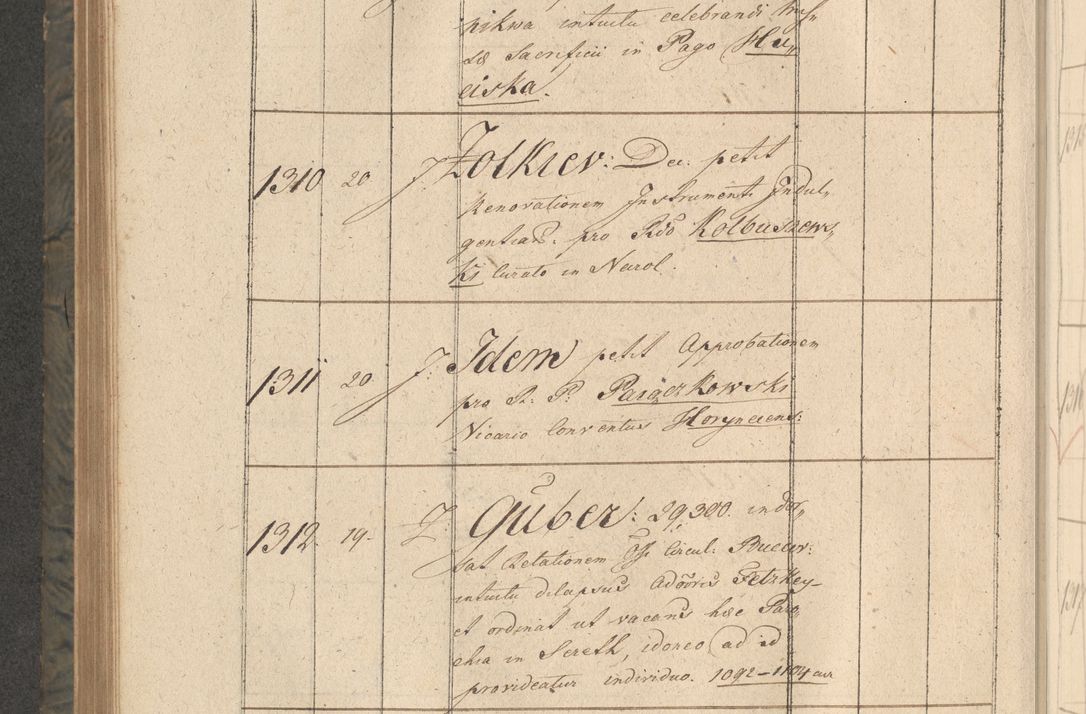 nikwa intuitu celebrandi Mis„
sæ Sacrificii in Pago Hu„
ciska.
1310 20 J. Żolkiev: Dec. petit
Renovationem Instrumenti Indul„
gentiar. pro Rdo Kolbuszews„
ki Curato in Narol.
1311 20 J. Idem petit Approbationem
pro R. P. Pasiączkowski
Vicario Conventus Horynecens:
1312. 19. J. Guber: 29,300. indor„
sat Relationem Off. Circul: Buccov:
intuitu dilapsus Adõõris Fetzkey
et ordinat ut vacans hæc Paro
chia in Sereth, idoneo ad id
provideatur individuo. 1092–1104 cur